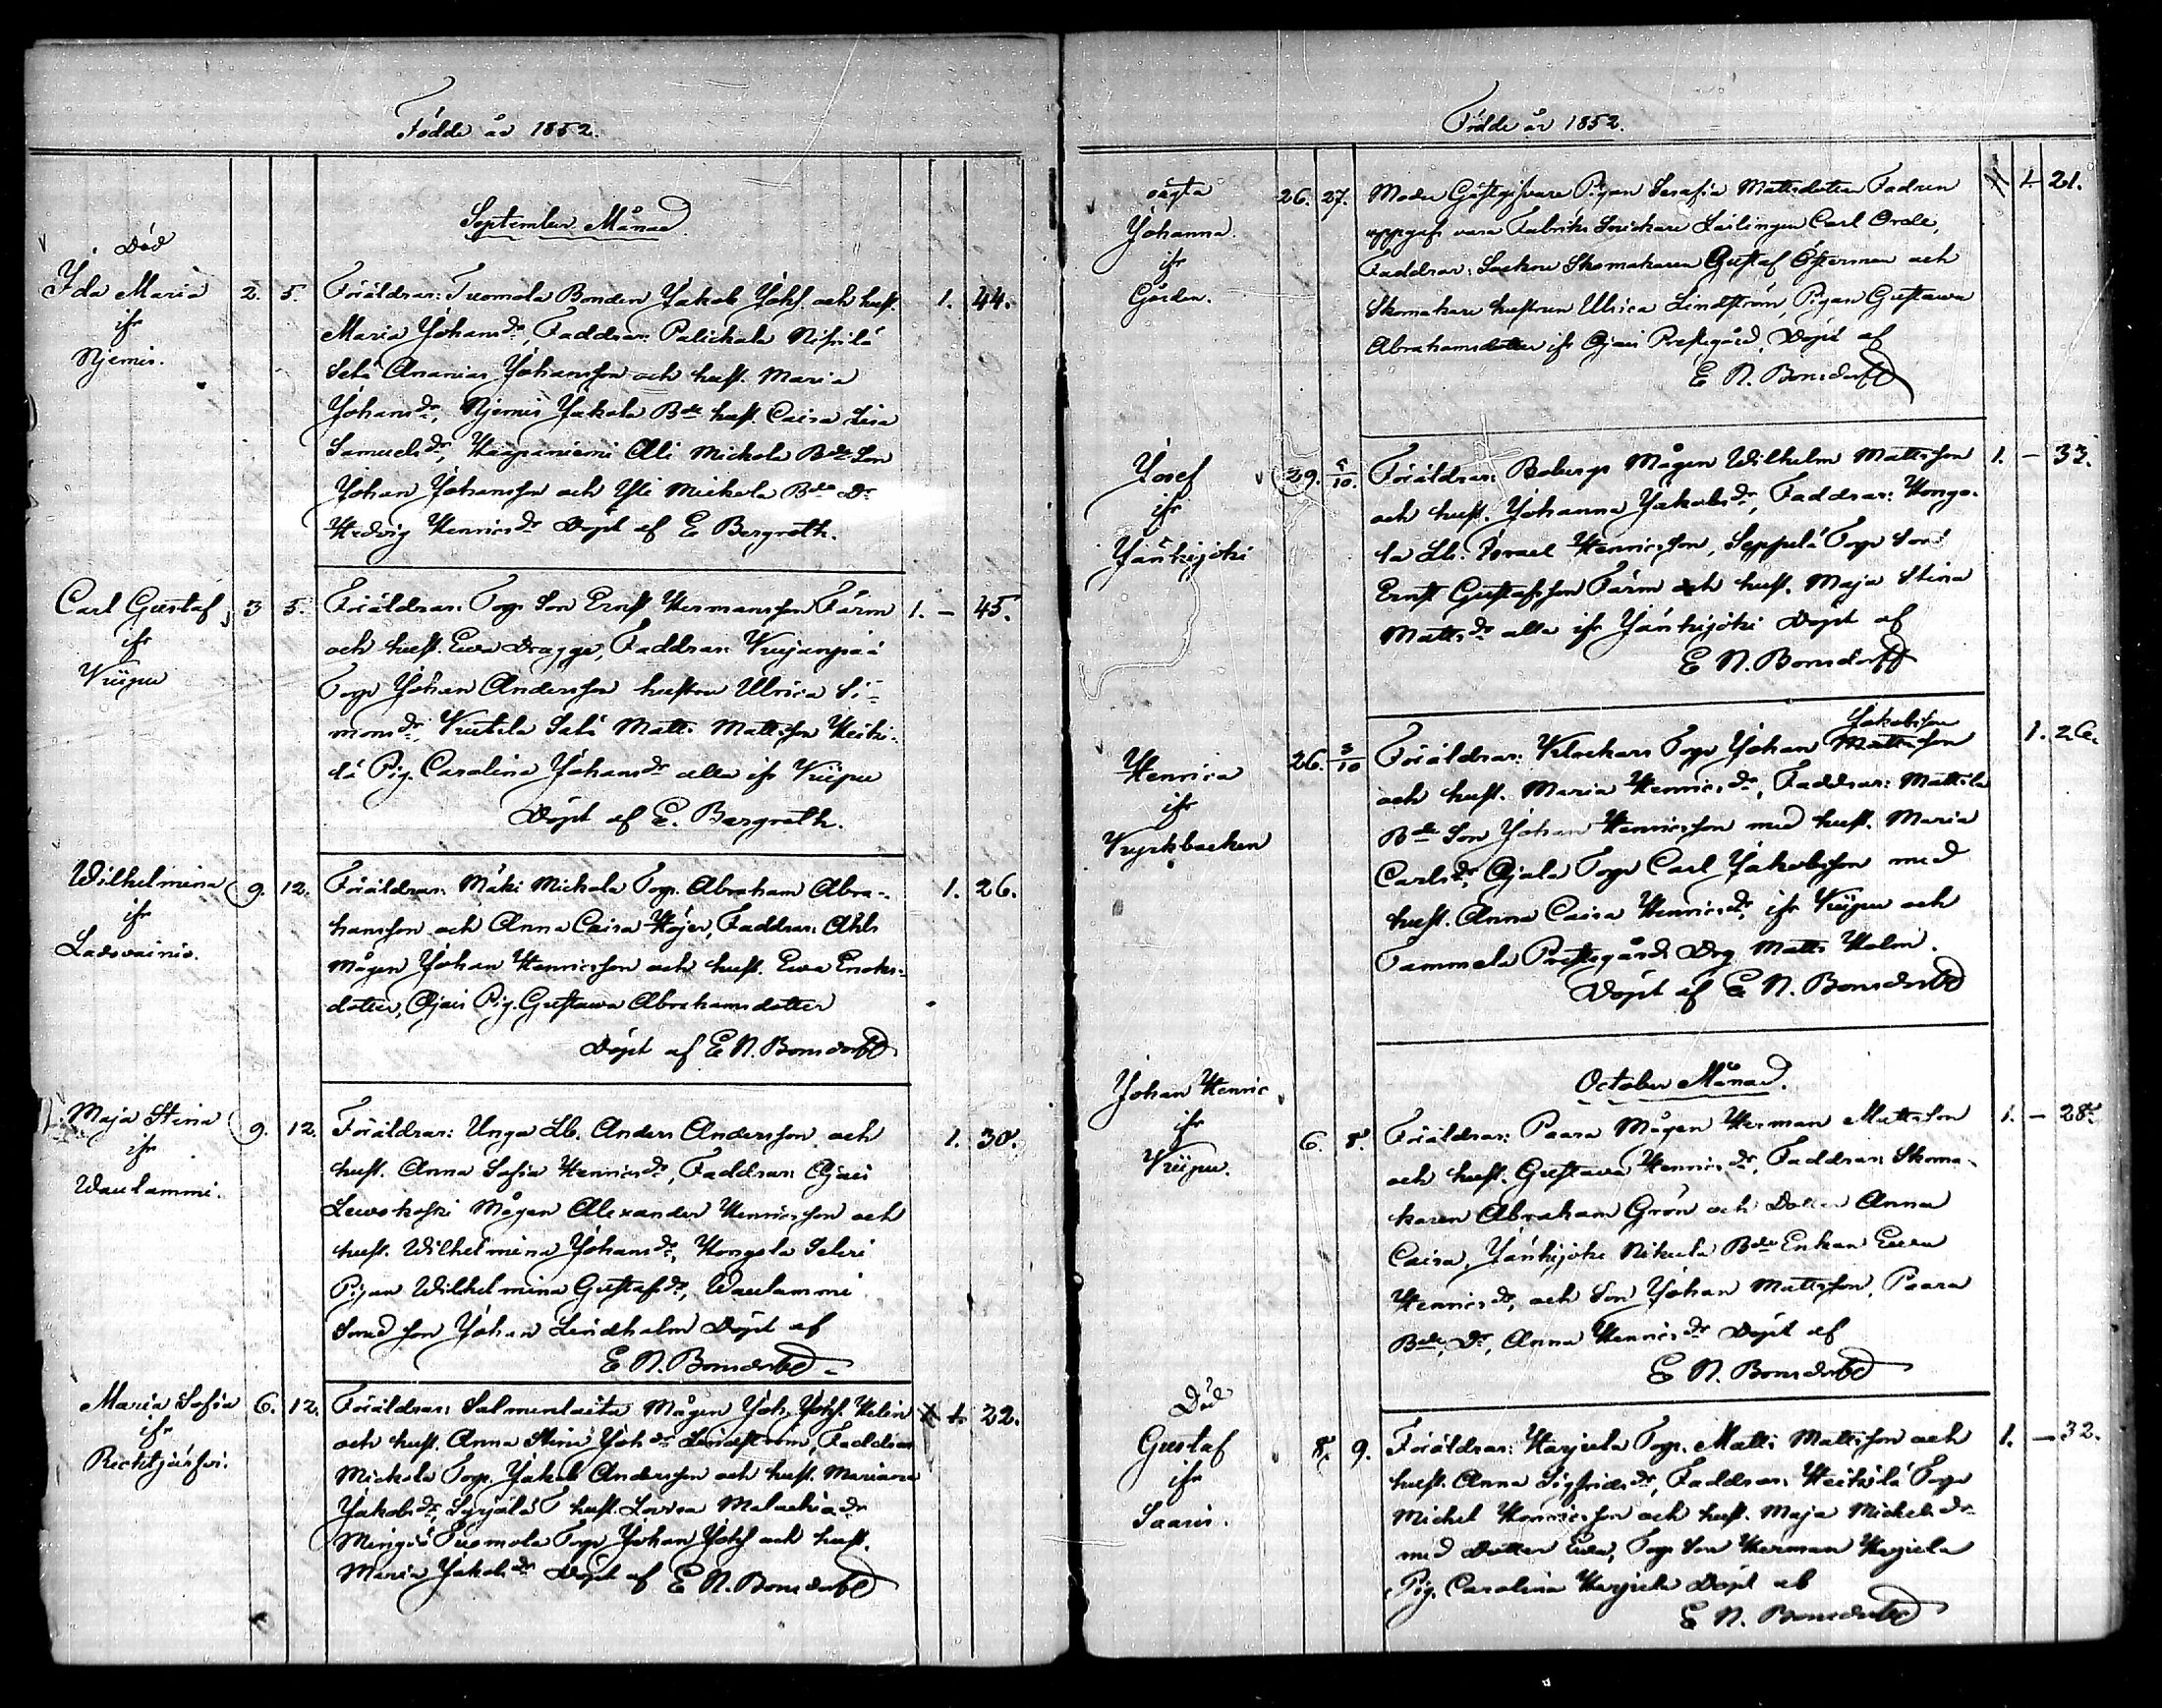 Födde år 1852.
September Månad.
Död
Ida Maria 2. 5. Föräldrar: Tuomola Bonden Jakob Johs. och hust. 1. 44.
ifr Maria Johansdr, Faddrar: Palickala
Njemis. Seli Ananias Johansson och hust. Maria
Johansdr, Njemis Jakola Bde hust. Caisa Lisa
Samuelsdr, Haapaniemi Ali Mickola Bde Son
Johan Johansson och Yli Mickola Bde Dr
Hedvig Henricsdr Döpt af E Bergroth.
Carl Gustaf 3 5. Föräldrar: Torp. Son Ernst Hermansson Färm 1. – 45.
ifr och hust. Eva Dragge, Faddrar: Kuijanpää
Kuipu Torp. Johan Andersson hustru Ulrica Si-
monsdr, Matts Mattsson Heiki-
lä Pig. Carolina Johansdr alla ifr Kuipu
Döpt af E. Bergroth.
Wilhelmina 9. 12. Föräldrar: Mäki Mickola Torp. Abraham Abra- 1. 26.
ifr hamsson och Anna Caisa Höjer, Faddrar: Ahls
Ladovainio. Mågen Johan Henricsson och hust. Eva Enoks-
dotter, Ojais Pig. Gustawa Abrahamsdotter
Döpt af E N. Bonsdorff
Maja Stina 9. 12. Föräldrar: Unga Lb. Anders Andersson och 1. 30.
ifr hust. Anna Sofia Henricsdr, Faddrar: Ojais
Waulammi. Lewokoski Mågen Alexander Henricsson och
hust. Wilhelmina Johansdr, Kongola
Pigan Wilhelmina Gustafsdr, Waulammi
Smed son Johan Lindholm Döpt af
E N. Bonsdorff
Maria Sofia 6. 12. Föräldrar: Salmenlaita Mågen Joh. Johs. Helin 22.
ifr och hust. Anna Stina Johdr Lindström, Faddrar
Mickola Torp. Jakob Andersson och hust. Mariana
Jakobsdr, Syrjälä T hust. Lovisa Malachiadr
Tuomola Torp. Johan Johs och hust.
Maria Jakobsdr Döpt af E N. Bonsdorff
Födde år 1852.
oägta 26. 27. Moder Gästgifvare Pigan Serafia Mattsdotter Fadren 21.
Johanna uppgafs vara Fabriks Snickare Lärlingen Carl Orde,
ifr Faddrar: Socken Skomakaren Gustaf Österman och
Gården. Skomakare hustrun Ulrica Lindström, Pigan Gustawa
Abrahamsdotter ifr Ojais Prestgård, Döpt af
E N. Bonsdorff
Josef 29. 5/10. Föräldrar: Bobergs Mågen Wilhelm Mattsson 1. – 33.
ifr och hust. Johanna Jakobsdr, Faddrar: Kongo-
Jänhijoki la Lb. Israel Henricsson, Seppälä Torp. Son
Ernst Gustafsson Färm och hust. Maja Stina
Mattsdr alla ifr Jänhijoki Döpt af
E N. Bonsdorff
Jakobsson
Henrica 26. 3/10 Föräldrar: Klockars Torp. Johan Mattsson 1. 26.
ifr och hust. Maria Henricsdr, Faddrar: Mattila
Kyrkbacken Bde Son Johan Henricsson med hust. Maria
Carlsdr, Ojala Torp. Carl Jakobsson med
hust. Anna Caisa Henricsdr, ifr Kuipu och
Tammela Prestgårds Drg Matts Holm.
Döpt af E N. Bonsdorff
October Månad.
Johan Henric 6. 8. Föräldrar: Paara Mågen Herman Mattsson 1. – 28.
ifr och hust. Gustawa Henricsdr, Faddrar: Skoma-
Kuipu. karen Abraham Grön och Dotter Anna
Caisa, Jänhijoki Nikula Bde Enkan Eva
Henricsdr, och Son Johan Mattsson, Paara
Bde, Dr, Anna Henricsdr Döpt af
E N. Bonsdorff
Död
Gustaf 8. 9. Föräldrar: Harjula Torp. Matts Mattsson och 1. – 32.
ifr hust. Anna Sigfridsdr, Faddrar: Heikilä Torp
Saaris. Michel Henricsson och hust. Maja Michelsdr
med Dotter Eva, Torp. Son Herman Harjula
Pig. Carolina Harjula Döpt af
E N. Bonsdorff